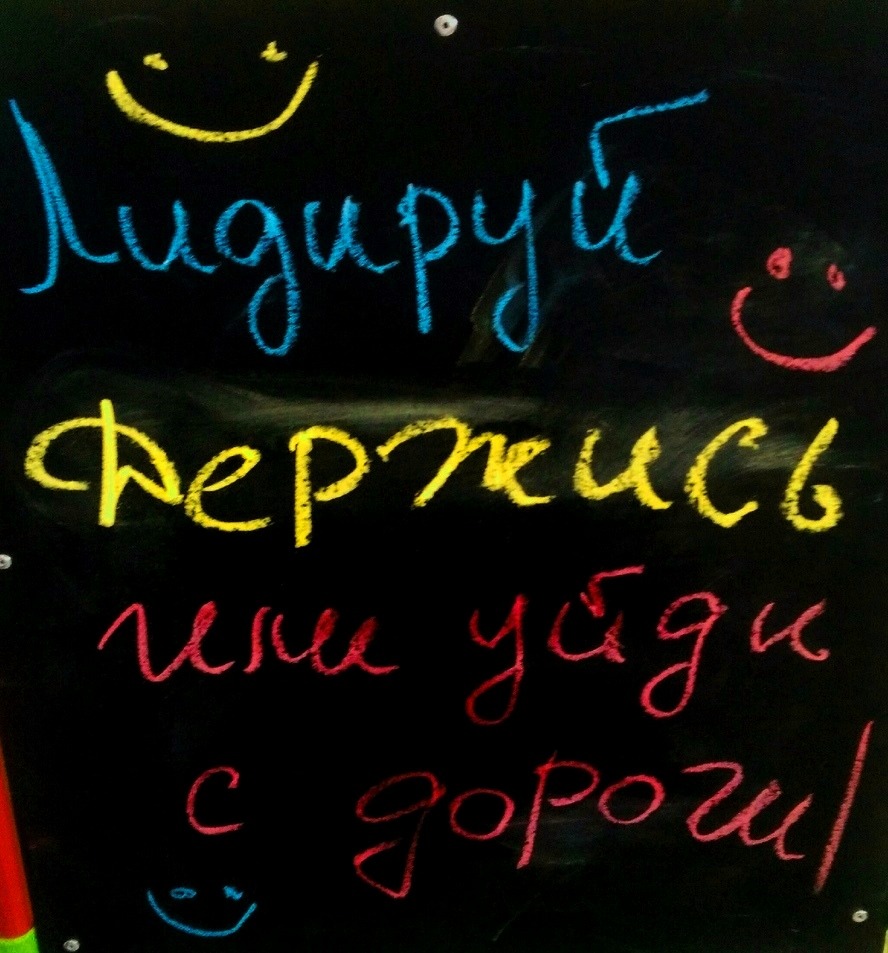 Лидируй
Держись
или уйди
с дороги!